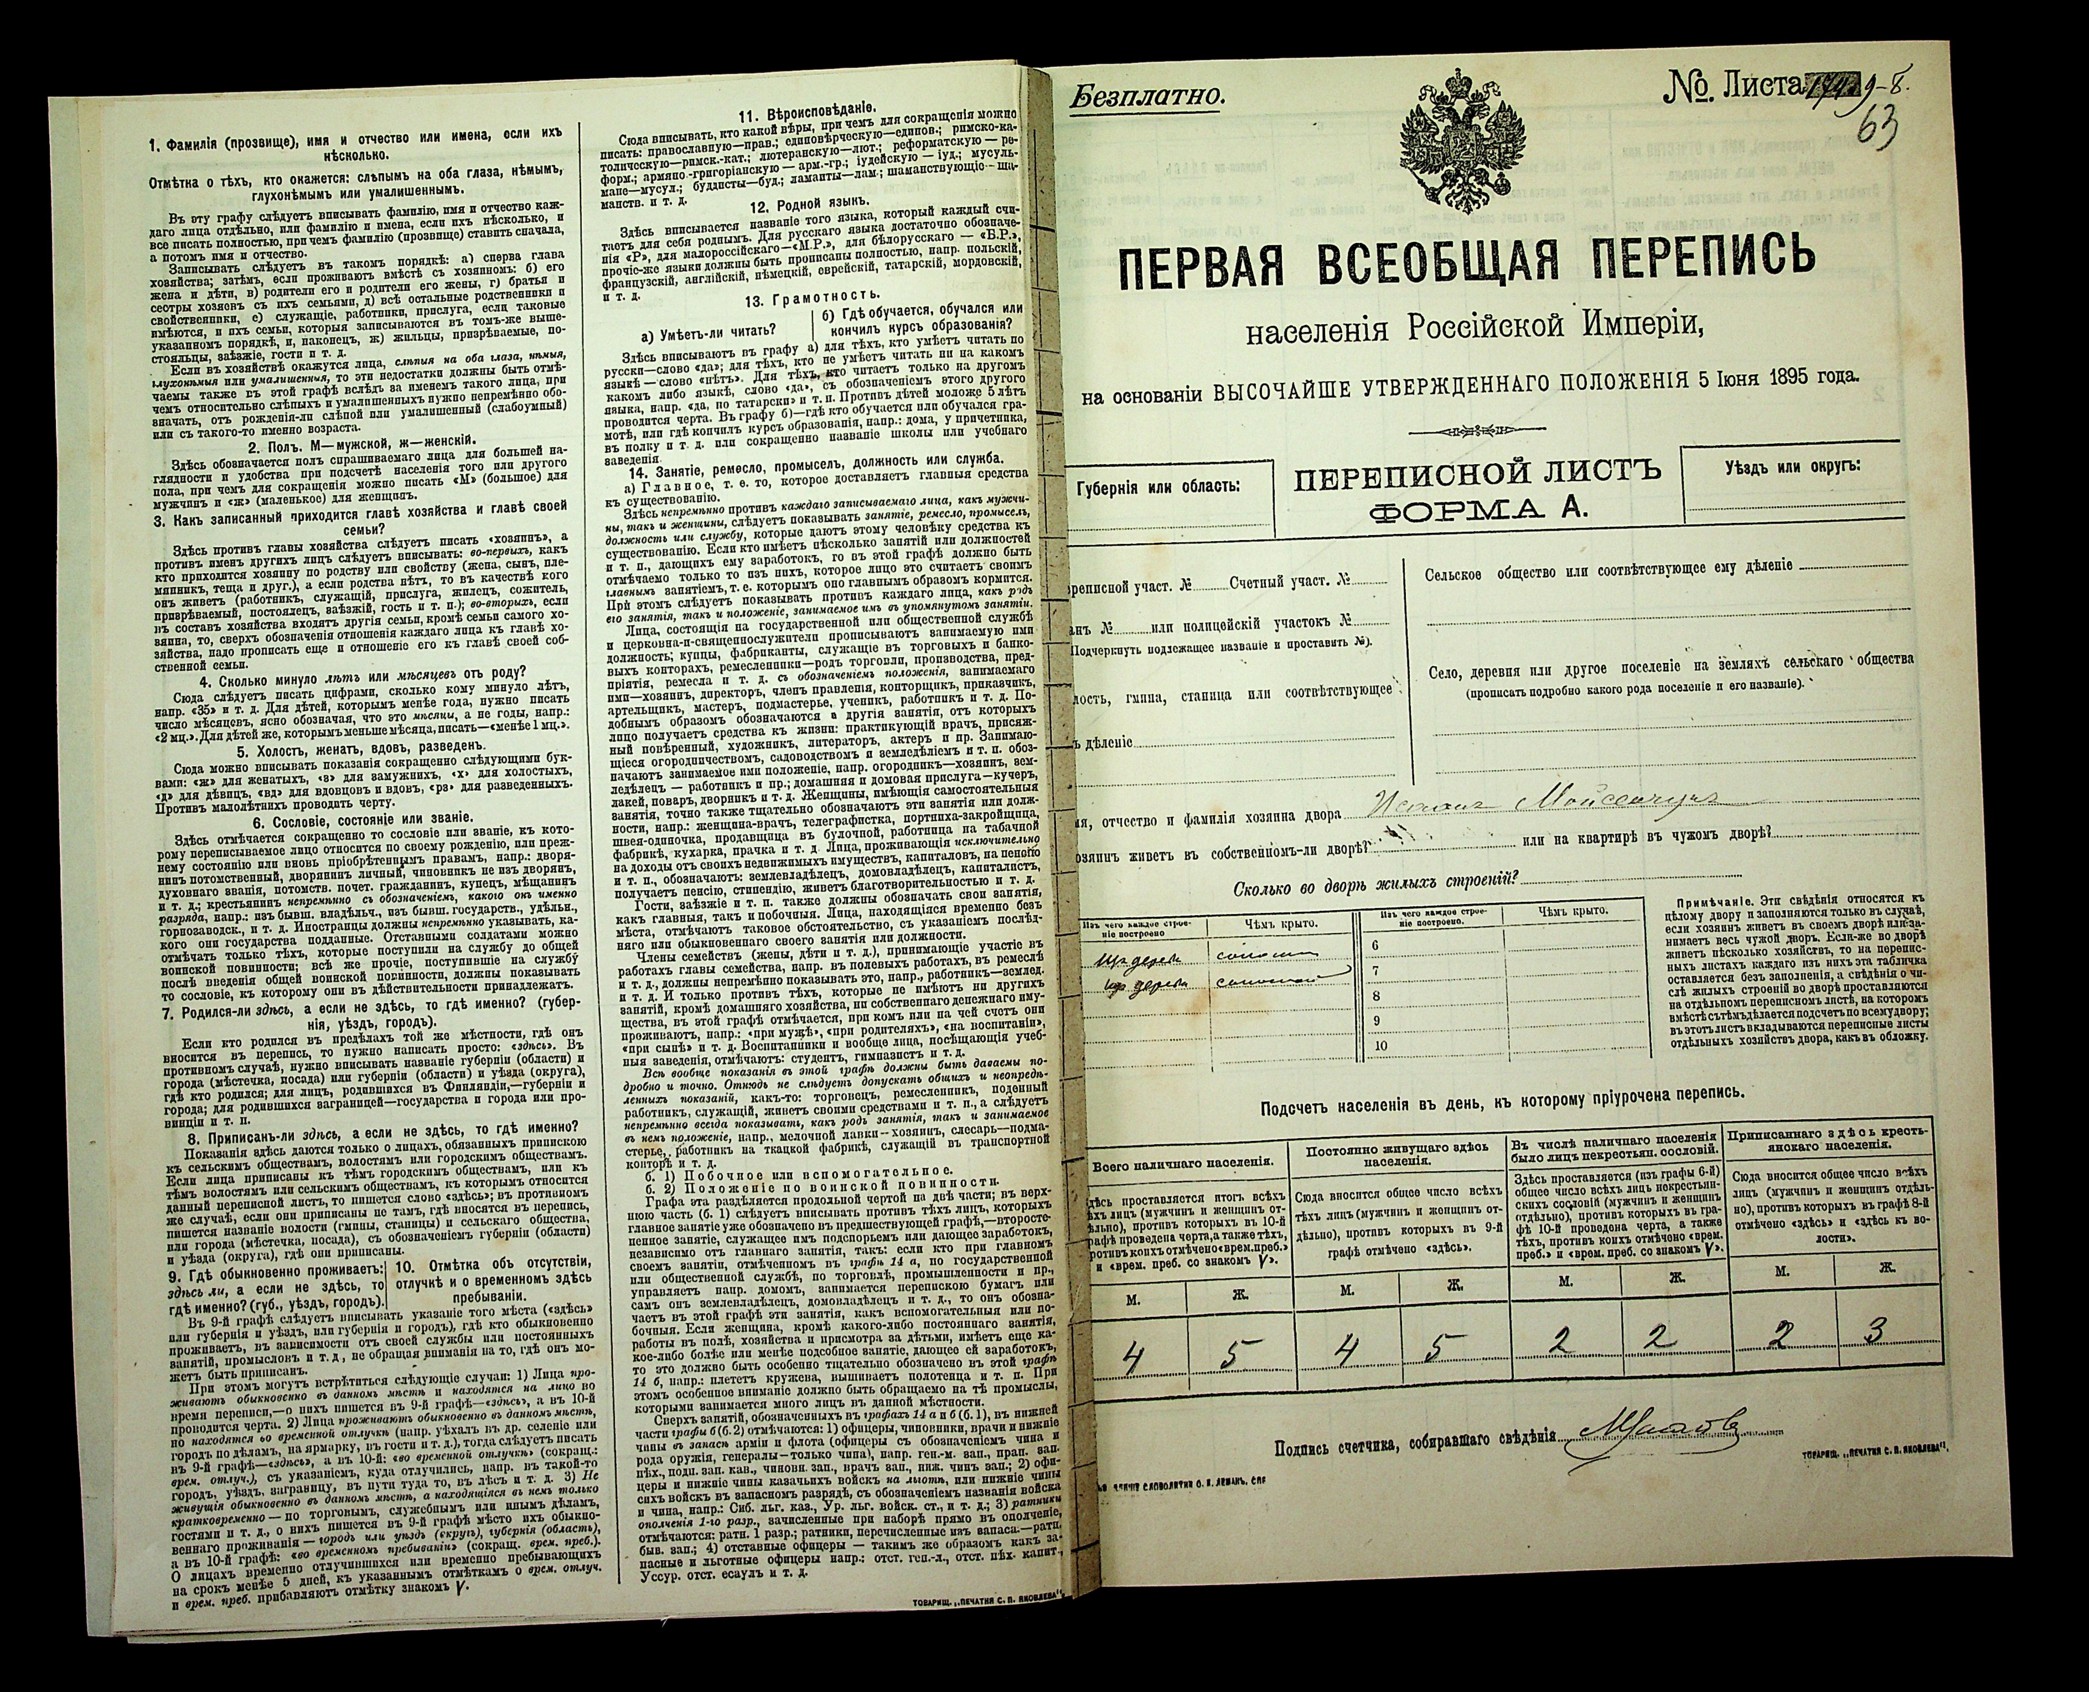 1. Фамилія (прозвище), имя и отчество или имена, если ихъ
нѣсколько.
Отмѣтка о тѣхъ, кто окажется: слѣпымъ на оба глаза, нѣмымъ,
глухонѣмымъ или умалишеннымъ.
Въ эту графу слѣдуетъ вписывать фамилію, имя и отчество каж-
даго лица отдѣльно, или фамилію и имена, если ихъ нѣсколько, и
все писать полностью, при чемъ фамилію (прозвище) ставить сначала,
а потомъ имя и отчество.
Записывать слѣдуетъ въ такомъ порядкѣ: а) сперва глава
хозяйства; затѣмъ, если проживаютъ вмѣстѣ съ хозяиномъ: б) его
жена и дѣти, в) родители его и родители его жены, г) братья и
сестры хозяевъ съ ихъ семьями, д) всѣ остальные родственники и
свойственники, е) служащіе, работники, прислуга, если таковые
имѣются, и ихъ семьи, которыя записываются въ томъ-же выше-
указанномъ порядкѣ, и, наконецъ, ж) жильцы, призрѣваемые, по-
стояльцы, заѣзжіе, гости и т. д.
Если въ хозяйствѣ окажутся лица, слѣпыя на оба глаза, нѣмыя,
глухонѣмыя или умалишенныя, то эти недостатки должны быть отмѣ-
чаемы также въ этой графѣ вслѣдъ за именемъ такого лица, при
чемъ относительно слѣпыхъ и умалишенныхъ нужно непремѣнно обо-
значать, отъ рожденія-ли слѣпой или умалишенный (слабоумный)
или съ такого-то именно возраста.
2. Полъ. М—мужской, ж—женскій.
Здѣсь обозначается полъ спрашиваемаго лица для большей на-
глядности и удобства при подсчетѣ населенія того или другого
пола, при чемъ для сокращенія можно писать «М» (большое) для
мужчинъ и «ж» (маленькое) для женщинъ.
3. Какъ записанный приходится главѣ хозяйства и главѣ своей
семьи?
Здѣсь противъ главы хозяйства слѣдуетъ писать «хозяинъ», а
противъ именъ другихъ лицъ слѣдуетъ вписывать: во-первыхъ, какъ
кто приходится хозяину по родству или свойству (жена, сынъ, пле-
мянникъ, теща и друг.), а если родства нѣтъ, то въ качествѣ кого
онъ живетъ (работникъ, служащій, прислуга, жилецъ, сожитель,
призрѣваемый, постоялецъ, заѣзжій, гость и т. п.); во-вторыхъ, если
въ составъ хозяйства входятъ другія семьи, кромѣ семьи самого хо-
зяина, то, сверхъ обозначенія отношенія каждаго лица къ главѣ хо-
зяйства, надо прописать еще и отношеніе его къ главѣ своей соб-
ственной семьи.
4. Сколько минуло лѣтъ или мѣсяцевъ отъ роду?
Сюда слѣдуетъ писать цифрами, сколько кому минуло лѣтъ,
напр. «35» и т. д. Для дѣтей, которымъ менѣе года, нужно писать
число мѣсяцевъ, ясно обозначая, что это мѣсяцы, а не годы, напр.:
«2 мц.». Для дѣтей же, которымъ меньше мѣсяца, писать—«менѣе 1 мц.».
5. Холостъ, женатъ, вдовъ, разведенъ.
Сюда можно вписывать показанія сокращенно слѣдующими бук-
вами: «ж» для женатыхъ, «з» для замужнихъ, «х» для холостыхъ,
«д» для дѣвицъ, «вд» для вдовцовъ и вдовъ, «рз» для разведенныхъ.
Противъ малолѣтнихъ проводать черту.
6. Сословіе, состояніе или званіе.
Здѣсь отмѣчается сокращенно то сословіе или званіе, къ кото-
рому переписываемое лицо относится по своему рожденію, или преж-
нему состоянію или вновь пріобрѣтеннымъ правамъ, напр.: дворя-
нинъ потомственный, дворянинъ личный, чиновникъ не изъ дворянъ,
духовнаго званія, потомств. почет. гражданинъ, купецъ, мѣщанинъ
и т. д.; крестьянинъ непремѣнно съ обозначеніемъ, какого онъ именно
разряда, напр.: изъ бывш. владѣльч., изъ бывш. государств., удѣльн.,
горнозаводск., и т. д. Иностранцы должны непремѣнно указывать, ка-
кого они государства подданные. Отставными солдатами можно
отмѣчать только тѣхъ, которые поступили на службу до общей
воинской повинности; всѣ же прочіе, поступившіе на службу
послѣ введенія общей воинской повинности, должны показывать
то сословіе, къ которому они въ дѣйствительности принадлежатъ.
7. Родился-ли здѣсь, а если не здѣсь, то гдѣ именно? (губер-
нія, уѣздъ, городъ).
Если кто родился въ предѣлахъ той же мѣстности, гдѣ онъ
вносится въ перепись, то нужно написать просто: «здѣсь». Въ
противномъ случаѣ, нужно вписывать названіе губерніи (области) и
города (мѣстечка, посада) или губерніи (области) и уѣзда (округа),
гдѣ кто родился; для лицъ, родившихся въ Финляндіи,—губерніи и
города; для родившихся заграницей—государства и города или про-
винціи и т. п.
8. Приписанъ-ли здѣсь, а если не здѣсь, то гдѣ именно?
Показанія здѣсь даются только о лицахъ, обязанныхъ припискою
къ сельскимъ обществамъ, волостямъ или городскимъ обществамъ.
Если лица приписаны къ тѣмъ городскимъ обществамъ, или къ
тѣмъ волостямъ или сельскимъ обществамъ, къ которымъ относится
данный переписной листъ, то пишется слово «здѣсь»; въ противномъ
же случаѣ, если они приписаны не тамъ, гдѣ вносятся въ перепись,
пишется названіе волости (гмины, станицы) и сельскаго общества,
или города (мѣстечка, посада), съ обозначеніемъ губерніи (области)
и уѣзда (округа), гдѣ они приписаны.
9. Гдѣ обыкновенно проживаетъ:
здѣсь ли, а если не здѣсь, то
гдѣ именно? (губ., уѣздъ, городъ).
10. Отмѣтка объ отсутствіи,
отлучкѣ и о временномъ здѣсь
пребываніи.
Въ 9-й графѣ слѣдуетъ вписывать указаніе того мѣста («здѣсь»
или губернія и уѣздъ, или губернія и городъ), гдѣ кто обыкновенно
проживаетъ, въ зависимости отъ своей службы или постоянныхъ
занятій, промысловъ и т. д., не обращая вниманія на то, гдѣ онъ мо-
жетъ быть приписанъ.
При этомъ могутъ встрѣтиться слѣдующіе случаи: 1) Лица про-
живаютъ обыкновенно въ данномъ мѣстѣ и находятся на лицо во
время переписи,—о нихъ пишется въ 9-й графѣ—«здѣсь», а въ 10-й
проводится черта. 2) Лица проживаютъ обыкновенно въ данномъ мѣстѣ,
но находятся во временной отлучкѣ (напр. уѣхалъ въ др. селеніе или
городъ по дѣламъ, на ярмарку, въ гости и т. д.), тогда слѣдуетъ писать
въ 9-й графѣ—«здѣсь», а въ 10-й: «во временной отлучкѣ» (сокращ.:
врем. отлуч.), съ указаніемъ, куда отлучились, напр. въ такой-то
городъ, уѣздъ, заграницу, въ пути туда то, въ лѣсъ и т. д. 3) Не
живущія обыкновенно въ данномъ мѣстѣ, а находящіяся въ немъ только
кратковременно — по торговымъ, служебнымъ или инымъ дѣламъ,
гостями и т. д., о нихъ пишется въ 9-й графѣ мѣсто ихъ обыкно-
веннаго проживанія — городъ или уѣздъ (округъ), губернія (область),
а въ 10-й графѣ: «во временномъ пребываніи» (сокращ. врем. преб.).
О лицахъ временно отлучившихся или временно пребывающихъ
на срокъ менѣе 5 дней, къ указаннымъ отмѣткамъ о врем. отлуч.
и врем. преб. прибавляютъ отмѣтку знакомъ V.
11. Вѣроисповѣданіе.
Сюда вписывать, кто какой вѣры, при чемъ для сокращенія можно
писать: православную—прав.; единовѣрческую—единов.; римско-ка-
толическую—римск.-кат.; лютеранскую—лют.; реформатскую — ре-
форм.; армяно-григоріанскую — арм.-гр.; іудейскую — іуд.; мусуль-
мане—мусул.; буддисты—буд.; ламаиты—лам.; шаманствующіе — ша-
манств. и т. д.
12. Родной языкъ.
Здѣсь вписывается названіе того языка, который каждый счи-
таетъ для себя роднымъ. Для русскаго языка достаточно обозначе-
нія «Р», для малороссійскаго—«М.Р.», для бѣлорусскаго — «Б.Р.»,
прочіе-же языки должны быть прописаны полностью, напр. польскій,
французскій, англійскій, нѣмецкій, еврейскій, татарскій, мордовскій,
и т. д.
13. Грамотность.
а) Умѣетъ-ли читать?
б) Гдѣ обучается, обучался или
кончилъ курсъ образованія?
Здѣсь вписываютъ въ графу а) для тѣхъ, кто умѣетъ читать по
русски—слово «да»; для тѣхъ, кто не умѣетъ читать ни на какомъ
языкѣ — слово «нѣтъ». Для тѣхъ, кто читаетъ только на другомъ
какомъ либо языкѣ, слово «да», съ обозначеніемъ этого другого
языка, напр. «да, по татарски» и т. п. Противъ дѣтей моложе 5 лѣтъ
проводится черта. Въ графу б)—гдѣ кто обучается или обучался гра-
мотѣ, или гдѣ кончилъ курсъ образованія, напр.: дома, у причетника,
въ полку и т. д. или сокращенно названіе школы или учебнаго
заведенія.
14. Занятіе, ремесло, промыселъ, должность или служба.
а) Главное, т. е. то, которое доставляетъ главныя средства
къ существованію.
Здѣсь непремѣнно противъ каждаго записываемаго лица, какъ мужчи-
ны, такъ и женщины, слѣдуетъ показывать занятіе, ремесло, промыселъ,
должность или службу, которые даютъ этому человѣку средства къ
существованію. Если кто имѣетъ нѣсколько занятій или должностей
и т. п., дающихъ ему заработокъ, то въ этой графѣ должно быть
отмѣчаемо только то изъ нихъ, которое лицо это считаетъ своимъ
главнымъ занятіемъ, т. е. которымъ оно главнымъ образомъ кормится.
При этомъ слѣдуетъ показывать противъ каждаго лица, какъ родъ
его занятія, такъ и положеніе, занимаемое имъ въ упомянутомъ занятіи.
Лица, состоящія на государственной или общественной службѣ
и церковно-и-священнослужители прописываютъ занимаемую ими
должность; купцы, фабриканты, служащіе въ торговыхъ и банко-
выхъ конторахъ, ремесленники—родъ торговли, производства, пред-
пріятія, ремесла и т. д. съ обозначеніемъ положенія, занимаемаго
ими—хозяинъ, директоръ, членъ правленія, конторщикъ, приказчикъ,
артельщикъ, мастеръ, подмастерье, ученикъ, работникъ и т. д. По-
добнымъ образомъ обозначаются и другія занятія, отъ которыхъ
лицо получаетъ средства къ жизни: практикующій врачъ, присяж-
ный повѣренный, художникъ, литераторъ, актеръ и пр. Занимаю-
щіеся огородничествомъ, садоводствомъ и земледѣліемъ и т. п. обоз-
начаютъ занимаемое ими положеніе, напр. огородникъ—хозяинъ, зем-
ледѣлецъ — работникъ и пр.; домашняя и домовая прислуга—кучеръ,
лакей, поваръ, дворникъ и т. д. Женщины, имѣющія самостоятельныя
занятія, точно также тщательно обозначаютъ эти занятія или долж-
ности, напр.: женщина-врачъ, телеграфистка, портниха-закройщица,
швея-одиночка, продавщица въ булочной, работница на табачной
фабрикѣ, кухарка, прачка и т. д. Лица, проживающія исключительно
на доходы отъ своихъ недвижимыхъ имуществъ, капиталовъ, на пенсію
и т. п., обозначаютъ: землевладѣлецъ, домовладѣлецъ, капиталистъ,
получаетъ пенсію, стипендію, живетъ благотворительностью и т. д.
Гости, заѣзжіе и т. п. также должны обозначать свои занятія,
какъ главныя, такъ и побочныя. Лица, находящіяся временно безъ
мѣста, отмѣчаютъ таковое обстоятельство, съ указаніемъ послѣд-
няго или обыкновеннаго своего занятія или должности.
Члены семействъ (жены, дѣти и т. д.), принимающіе участіе въ
работахъ главы семейства, напр. въ полевыхъ работахъ, въ ремеслѣ
и т. д., должны непремѣнно показывать это, напр., работникъ—землед.
и т. д. И только противъ тѣхъ, которые не имѣютъ ни другихъ
занятій, кромѣ домашняго хозяйства, ни собственнаго денежнаго иму-
щества, въ этой графѣ отмѣчается, при комъ или на чей счетъ они
проживаютъ, напр.: «при мужѣ», «при родителяхъ», «на воспитаніи»,
«при сынѣ» и т. д. Воспитанники и вообще лица, посѣщающія учеб-
ныя заведенія, отмѣчаютъ: студентъ, гимназистъ и т. д.
Всѣ вообще показанія въ этой графѣ должны быть даваемы по-
дробно и точно. Отнюдь не слѣдуетъ допускать общихъ и неопредѣ-
ленныхъ показаній, какъ-то: торговецъ, ремесленникъ, поденный
работникъ, служащій, живетъ своими средствами и т. п., а слѣдуетъ
непремѣнно всегда показывать, какъ родъ занятія, такъ и занимаемое
въ немъ положеніе, напр., мелочной лавки—хозяинъ, слесарь—подма-
стерье, работникъ на ткацкой фабрикѣ, служащій въ транспортной
конторѣ и т. д.
б. 1) Побочное или вспомогательное.
б. 2) Положеніе по воинской повинности.
Графа эта раздѣляется продольной чертой на двѣ части; въ верх-
нюю часть (б. 1) слѣдуетъ вписывать противъ тѣхъ лицъ, которыхъ
главное занятіе уже обозначено въ предшествующей графѣ,—второсте-
пенное занятіе, служащее имъ подспорьемъ или дающее заработокъ,
независимо отъ главнаго занятія, такъ: если кто при главномъ
своемъ занятіи, отмѣченномъ въ графѣ 14 а, по государственной
или общественной службѣ, по торговлѣ, промышленности и пр.,
управляетъ напр. домомъ, занимается перепискою бумагъ или
самъ онъ землевладѣлецъ, домовладѣлецъ и т. д., то онъ обозна-
чаетъ въ этой графѣ эти занятія, какъ вспомогательныя или по-
бочныя. Если женщина, кромѣ какого-либо постояннаго занятія,
работы въ полѣ, хозяйства и присмотра за дѣтьми, имѣетъ еще ка-
кое-либо болѣе или менѣе подсобное занятіе, дающее ей заработокъ,
то это должно быть особенно тщательно обозначено въ этой графѣ
14 б, напр.: плететъ кружева, вышиваетъ полотенца и т. п. При
этомъ особенное вниманіе должно быть обращаемо на тѣ промыслы,
которыми занимается много лицъ въ данной мѣстности.
Сверхъ занятій, обозначенныхъ въ графахъ 14 а и б (б. 1), въ нижней
части графы б (б. 2) отмѣчаются: 1) офицеры, чиновники, врачи и нижніе
чины въ запасѣ арміи и флота (офицеры съ обозначеніемъ чина и
рода оружія, генералы—только чина), напр. ген.-м. зап., прап. зап.
пѣх., подп. зап. кав., чиновн. зап., врачъ зап., ниж. чинъ зап.; 2) офи-
церы и нижніе чины казачьихъ войскъ на льготѣ, или нижніе чины
сихъ войскъ въ запасномъ разрядѣ, съ обозначеніемъ названія войска
и чина, напр.: Сиб. льг. каз., Ур. льг. войск. ст., и т. д.; 3) ратники
ополченія 1-го разр., зачисленные при наборѣ прямо въ ополченіе,
отмѣчаются: ратн. 1 разр.; ратники, перечисленные изъ запаса.—ратн.
быв. зап.; 4) отставные офицеры — такимъ же образомъ какъ за-
пасные и льготные офицеры напр.: отст. ген.-л., отст. пѣх. капит.,
Уссур. отст. есаулъ и т. д.
ТОВАРИЩ. „ПЕЧАТНЯ С. П. ЯКОВЛЕВА".
Безплатно.
№. Листа 9-б.
63
ПЕРВАЯ ВСЕОБЩАЯ ПЕРЕПИСЬ
населенія Россійской Имперіи,
на основаніи ВЫСОЧАЙШЕ УТВЕРЖДЕННАГО ПОЛОЖЕНІЯ 5 Іюня 1895 года.
Губернія или область:
ПЕРЕПИСНОЙ ЛИСТЪ
ФОРМА А.
Уѣздъ или округъ:
реписной участ. № Счетный участ. №
анъ № или полицейскій участокъ №
Подчеркнуть подлежащее названіе и проставить №).
лость, гмина, станица или соотвѣтствующее
ъ дѣленіе
Сельское общество или соотвѣтствующее ему дѣленіе
Село, деревня или другое поселеніе на земляхъ сельскаго общества
(прописать подробно какого рода поселеніе и его названіе).
мя, отчество и фамилія хозяина двора
озяинъ живетъ въ собственномъ-ли дворѣ? или на квартирѣ въ чужомъ дворѣ?
Сколько во дворѣ жилыхъ строеній?
Изъ чего каждое строе-
ніе построено
Чѣмъ крыто.
Изъ чего каждое строе-
ніе построено.
Чѣмъ крыто.
6
7
8
9
10
Примѣчаніе. Эти свѣдѣнія относятся къ
цѣлому двору и заполняются только въ случаѣ,
если хозяинъ живетъ въ своемъ дворѣ или за-
нимаетъ весь чужой дворъ. Если-же во дворѣ
живетъ нѣсколько хозяйствъ, то на перепис-
ныхъ листахъ каждаго изъ нихъ эта табличка
оставляется безъ заполненія, а свѣдѣнія о чи-
слѣ жилыхъ строеній во дворѣ проставляются
на отдѣльномъ переписномъ листѣ, на которомъ
вмѣстѣ съ тѣмъ дѣлается подсчетъ по всему двору;
въ этотъ листъ вкладываются переписные листы
отдѣльныхъ хозяйствъ двора, какъ въ обложку.
Подсчетъ населенія въ день, къ которому пріурочена перепись.
Всего наличнаго населенія.
Постоянно живущаго здѣсь
населенія.
Въ числѣ наличнаго населенія
было лицъ некрестьян. сословій.
Приписаннаго здѣсь кресть-
янскаго населенія.
дѣсь проставляется итогъ всѣхъ
ѣхъ лицъ (мужчинъ и женщинъ от-
ѣльно), противъ которыхъ въ 10-й
рафѣ проведена черта, а также тѣхъ,
ротивъ коихъ отмѣчено «врем. преб.»
и «врем. преб. со знакомъ V».
Сюда вносится общее число всѣхъ
тѣхъ лицъ (мужчинъ и женщинъ от-
дѣльно), противъ которыхъ въ 9-й
графѣ отмѣчено «здѣсь».
Здѣсь проставляется (изъ графы 6-й)
общее число всѣхъ лицъ некрестьян-
скихъ сословій (мужчинъ и женщинъ
отдѣльно), противъ которыхъ въ гра-
фѣ 10-й проведена черта, а также
тѣхъ, противъ коихъ отмѣчено «врем.
преб.» и «врем. преб. со знакомъ V».
Сюда вносится общее число всѣхъ
лицъ (мужчинъ и женщинъ отдѣль-
но), противъ которыхъ въ графѣ 8-й
отмѣчено «здѣсь» и «здѣсь къ во-
лости».
М. Ж. М. Ж. М. Ж. М. Ж.
4 5 4 5 2 2 2 3
Подпись счетчика, собиравшаго свѣдѣнія
ТОВАРИЩ. „ПЕЧАТНЯ С. П. ЯКОВЛЕВА".
СЛОВОЛИТНИ О. И. ЛЕМАНЪ, СПБ